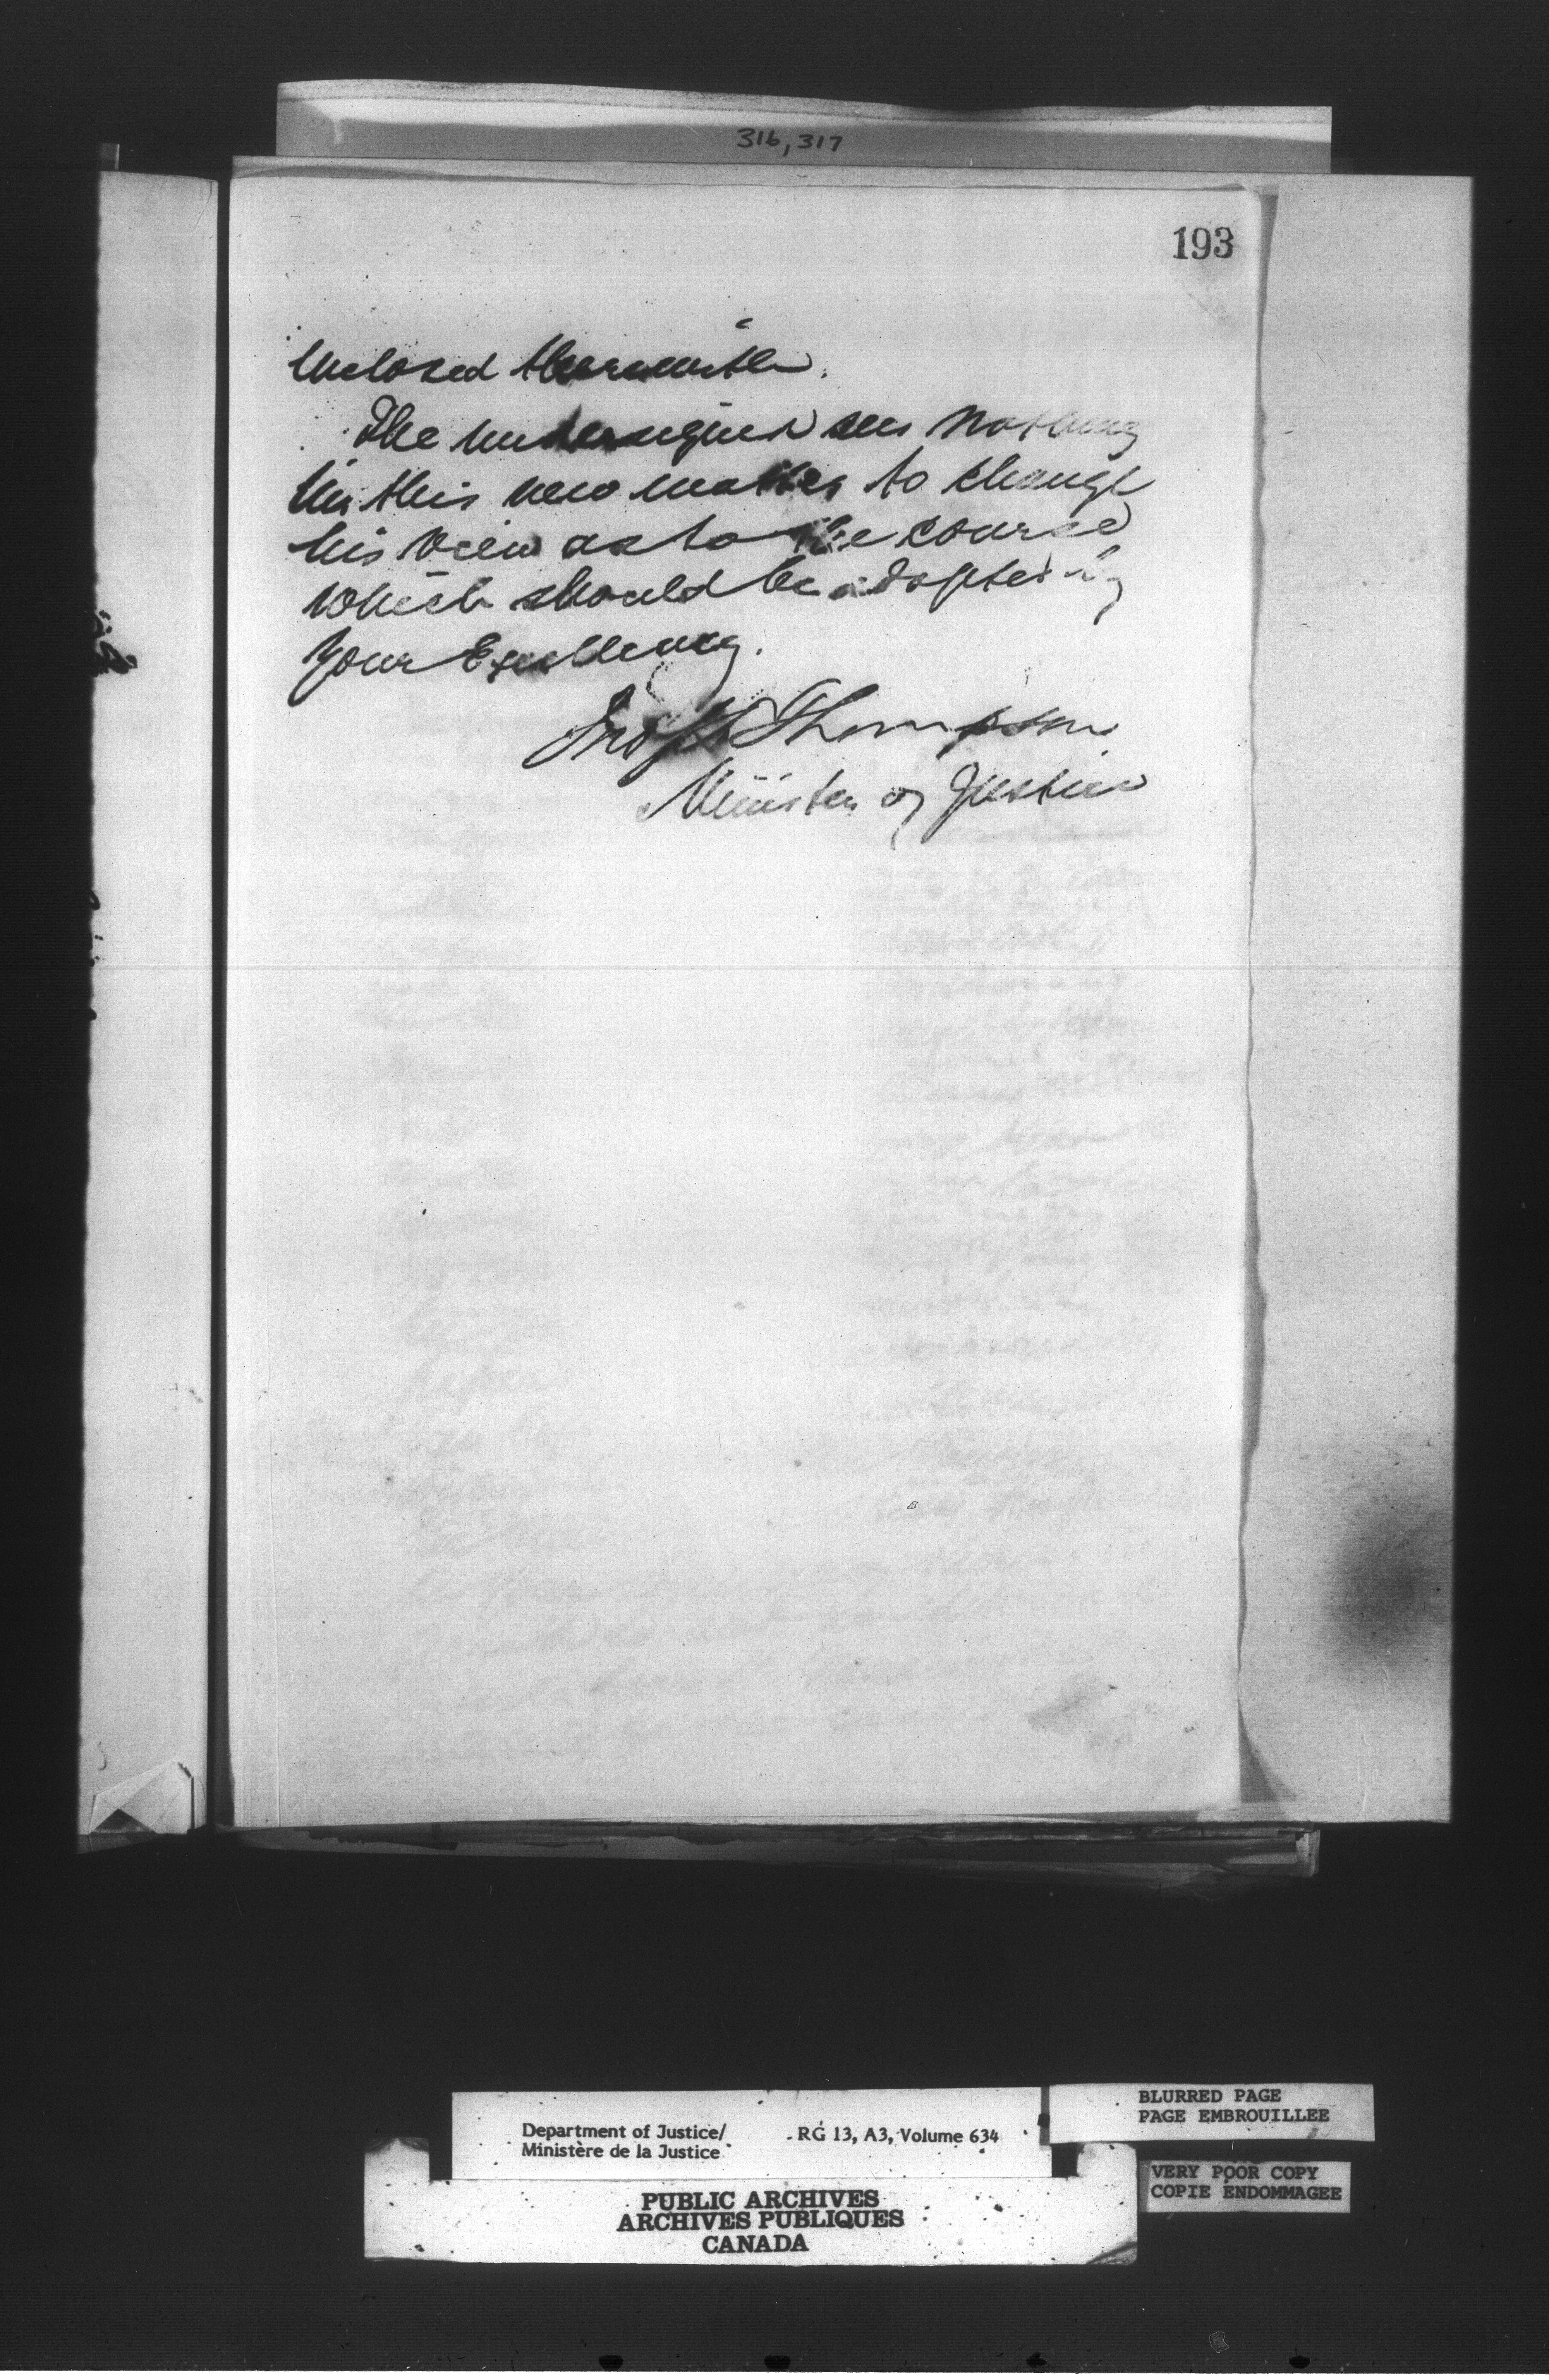 316, 317
193
enclosed therewith.
The undersigned sees nothing
in this new matter to change
his view as to the course
which should be adopted by
Your Excellency.
Jno S D Thompson
Minister of Justice
Department of Justice/
Ministère de la Justice
RG 13, A3, Volume 634
BLURRED PAGE
PAGE EMBROUILLEE
VERY POOR COPY
COPIE ENDOMMAGEE
PUBLIC ARCHIVES
ARCHIVES PUBLIQUES
CANADA